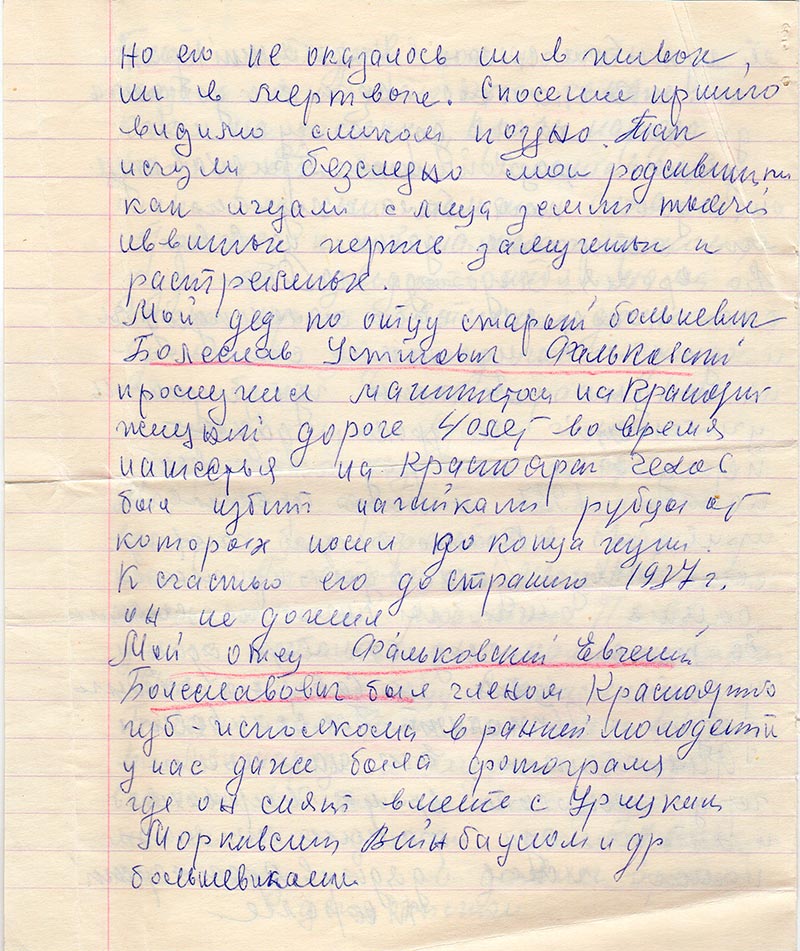 Но его не оказалось ни в живых,
ни в мертвых. Спасение пришло
видимо слишком поздно. Так
исчезли безследно мои родственники
как исчезали с лица земли тысячи
невинных жертв замученых и
растреляных.
Мой дед по отцу старый большевик
Болеслав Устинович Фальковский
прослужил на Красноярс
дороге 40 лет во время
нашествия на Красноярск чехов
был избит нагайками рубцы от
которых носил до конца жизни.
К счастью его до страшного 1937 г.
он не дожил
Мой отец Фальковский Евгений
Болеславович был членом Красноярского
губ исполкома в ранней молодости
у нас даже была фотография
где он снят вместе с Урицким
Марковским Вейнбаумом и др
большевиками.